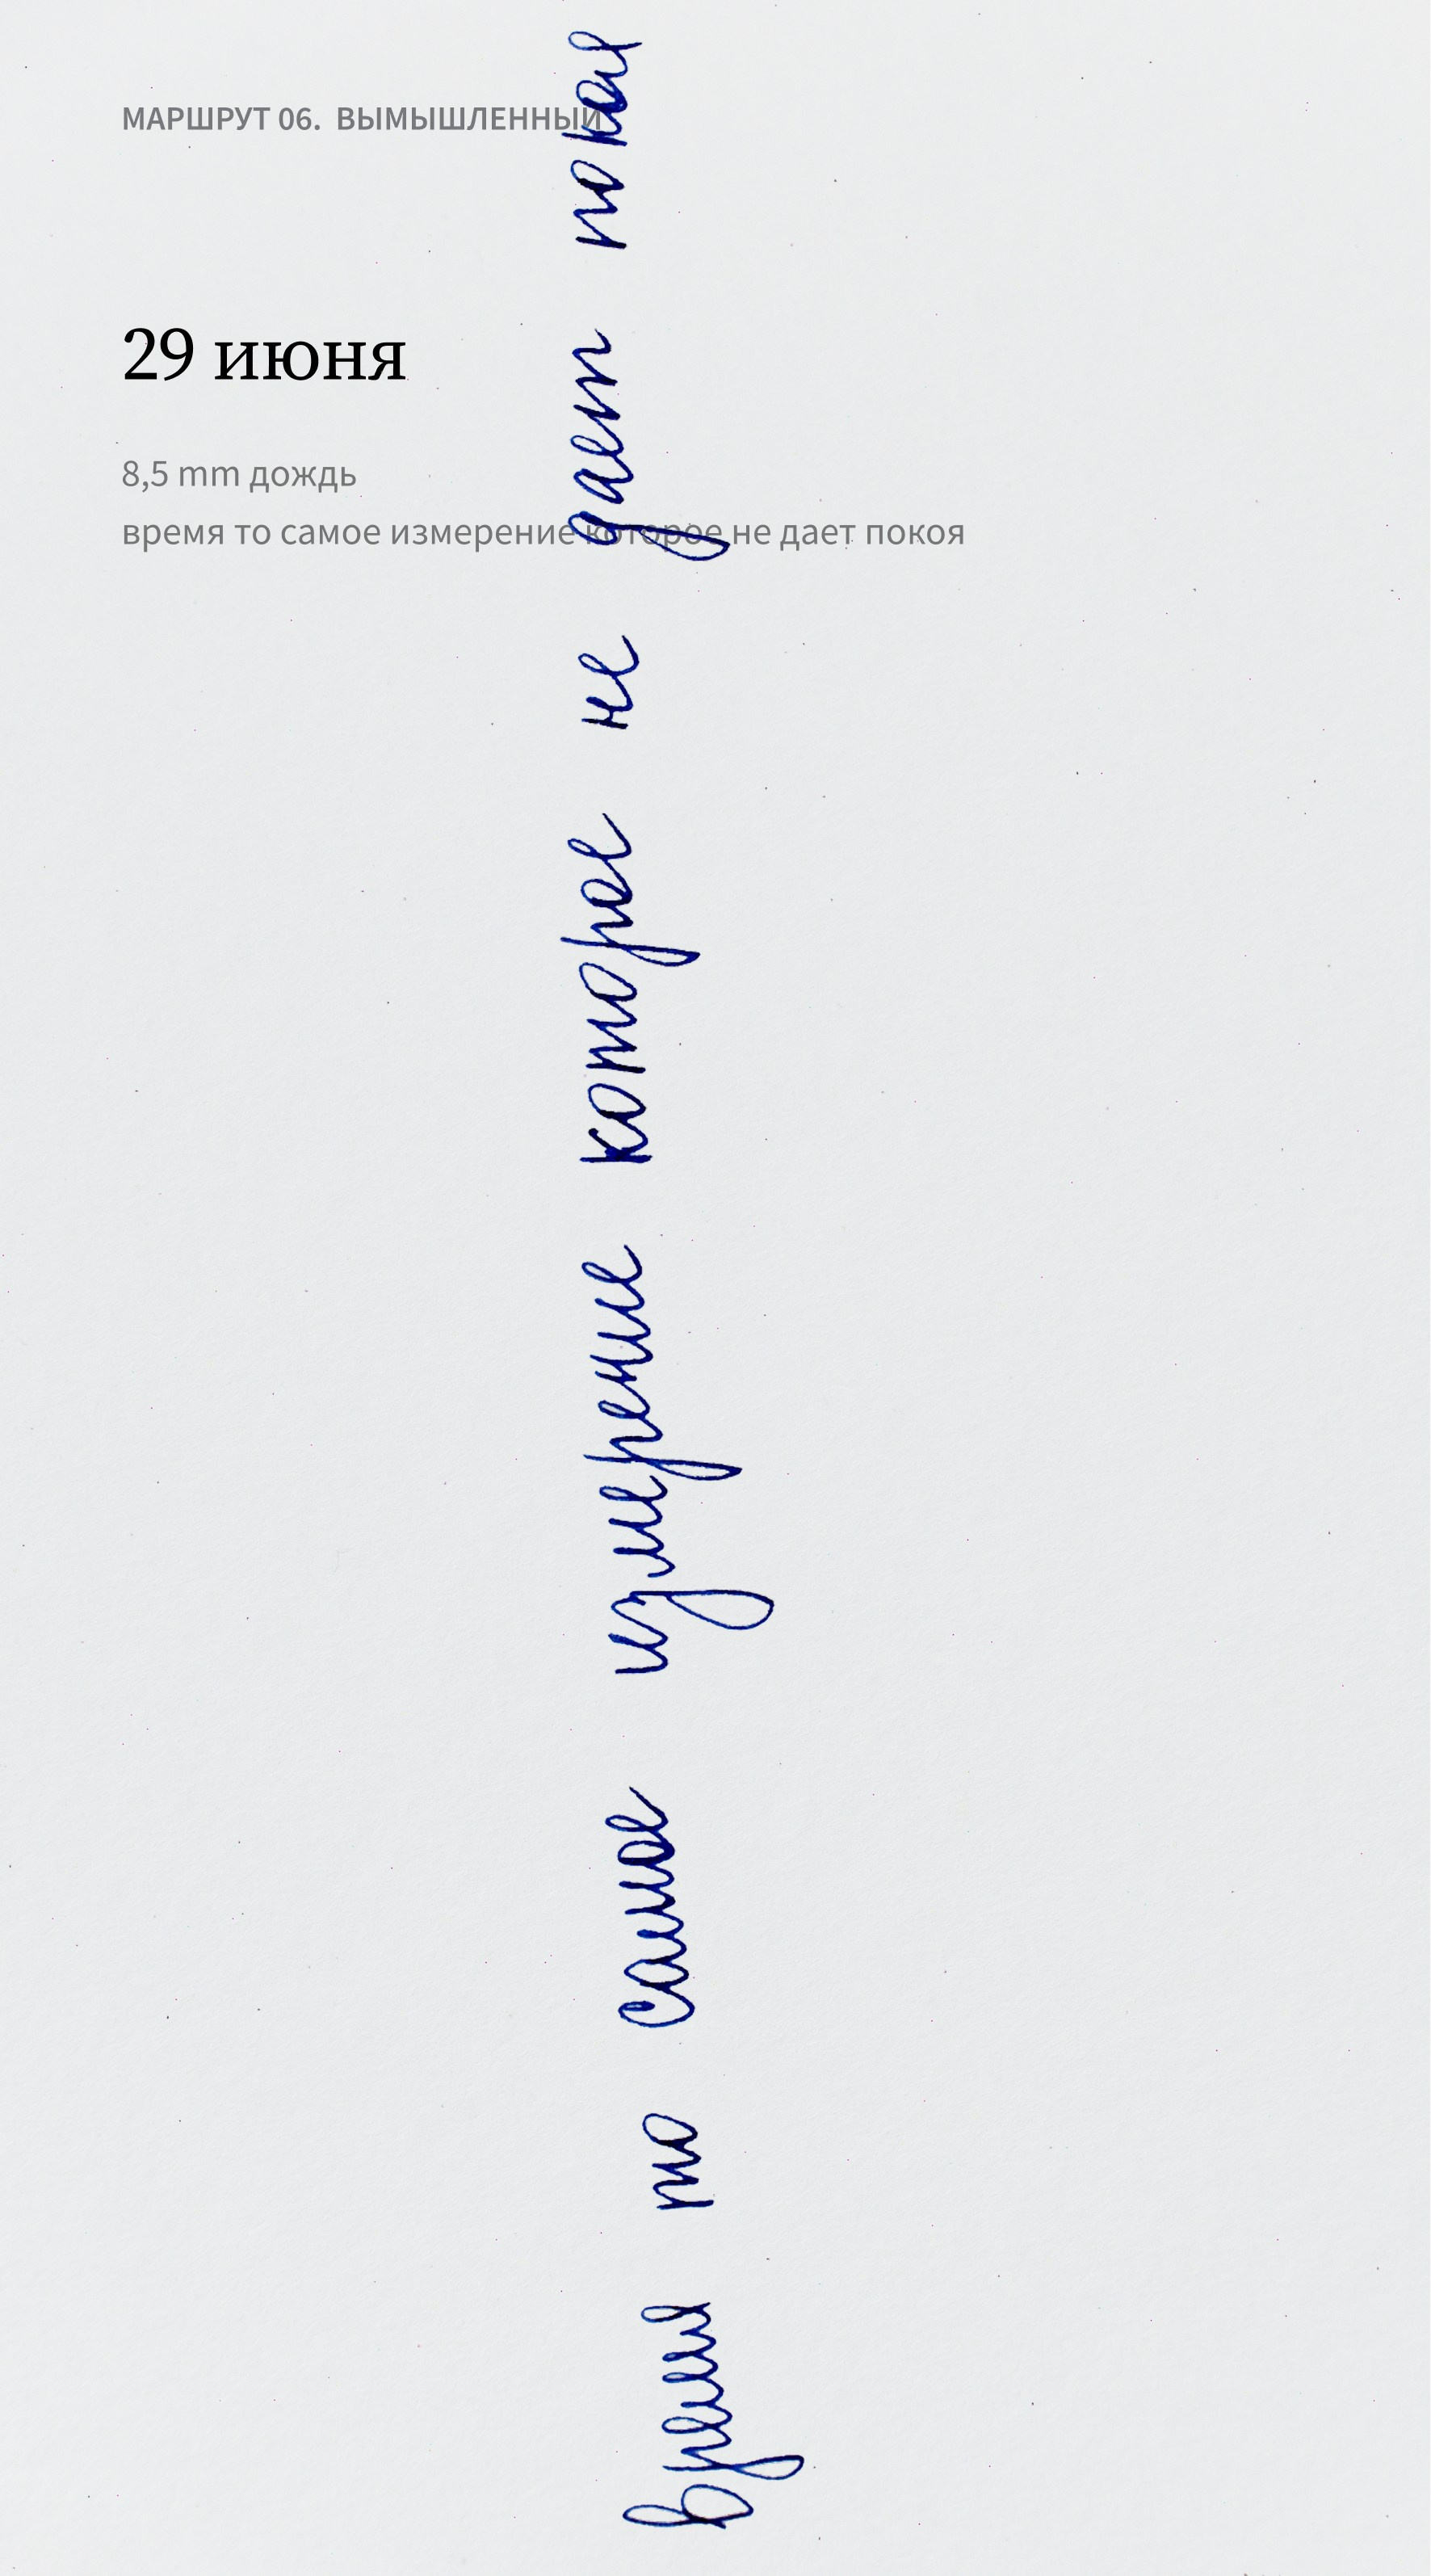 МАРШРУТ 06. ВЫМЫШЛЕННЫЙ
29 июня
8,5 mm дождь
время то самое измерение которое не дает покоя
время то самое измерение которое не дает покоя